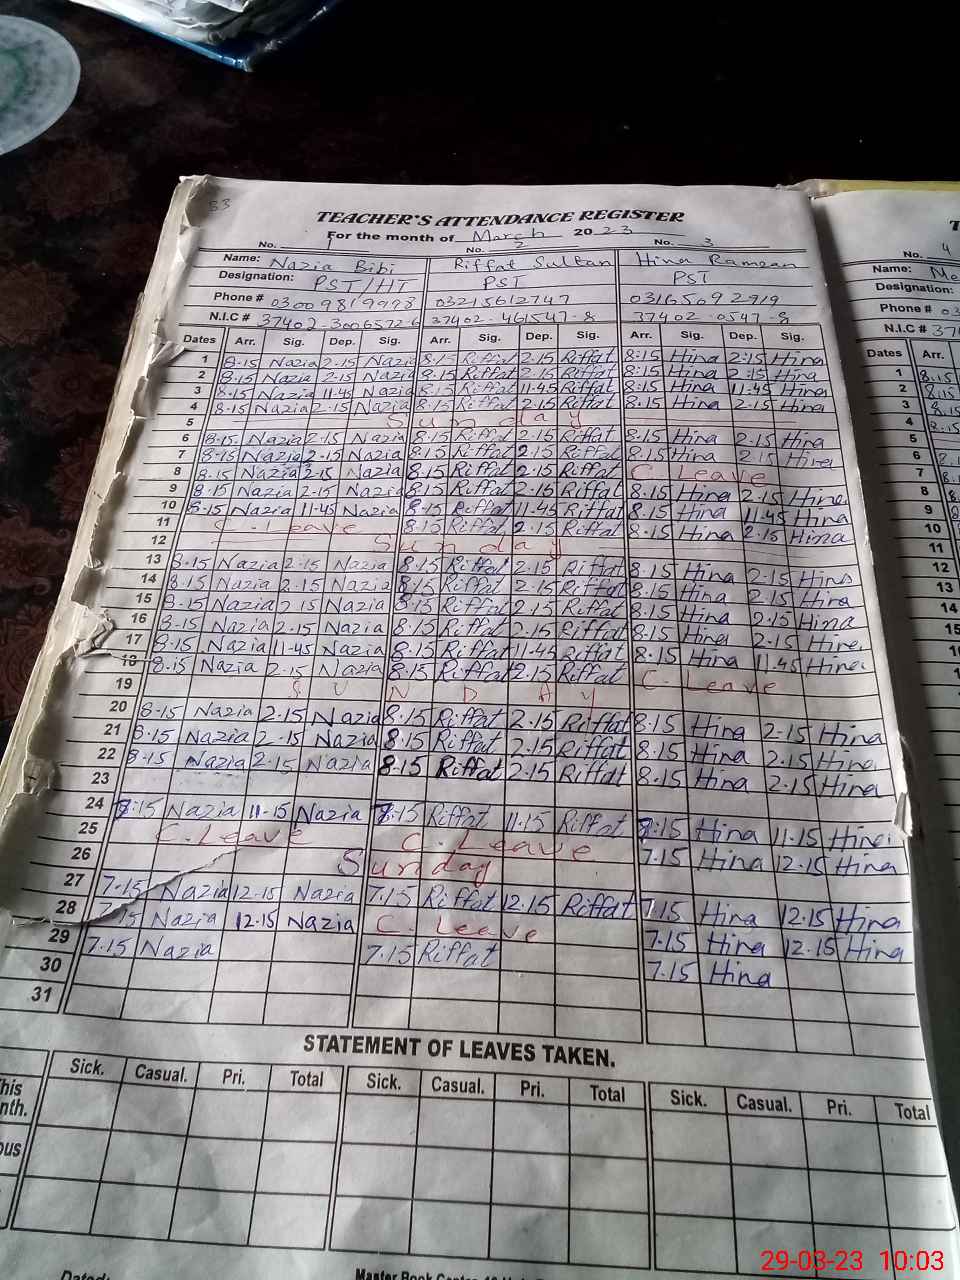 33
TEACHER'S ATTENDANCE REGISTER
For the month of March 2023
No. 1 No. 2 No. 3
Name: Nazia Bibi Riffat Sultan Hina Ramzan
Designation: PST/HT PST PST
Phone # 03009819998 03215612747 03165092919
N.I.C # 37402-30065726 37402-461547-8 37402-0547-8
Dates Arr. Sig. Dep. Sig. Arr. Sig. Dep. Sig. Arr. Sig. Dep. Sig.
1 8-15 Nazia 2-15 Nazia 8-15 Riffat 2.15 Riffat 8:15 Hina 2:15 Hina
2 8-15 Nazia 2-15 Nazia 8.15 Riffat 2.15 Riffat 8:15 Hina 2:15 Hina
3 8-15 Nazia 11-45 Nazia 8.15 Riffat 11.45 Riffat 8:15 Hina 11.45 Hina
4 8-15 Nazia 2-15 Nazia 8.15 Riffat 2.15 Riffat 8.15 Hina 2.15 Hina
5 Sunday
6 8-15 Nazia 2-15 Nazia 8.15 Riffat 2.15 Riffat 8.15 Hina 2.15 Hina
7 8-15 Nazia 2-15 Nazia 8.15 Riffat 2.15 Riffat 8.15 Hina 2.15 Hina
8 8-15 Nazia 2-15 Nazia 8.15 Riffat 2.15 Riffat C Leave
9 8-15 Nazia 2-15 Nazia 8.15 Riffat 2.15 Riffat 8.15 Hina 2.15 Hina
10 8-15 Nazia 11-45 Nazia 8.15 Riffat 11.45 Riffat 8.15 Hina 11.45 Hina
11 C. Leave 8.15 Riffat 2.15 Riffat 8.15 Hina 2.15 Hina
12 Sunday
13 8-15 Nazia 2-15 Nazia 8.15 Riffat 2.15 Riffat 8.15 Hina 2.15 Hina
14 8-15 Nazia 2-15 Nazia 8.15 Riffat 2.15 Riffat 8.15 Hina 2.15 Hina
15 8-15 Nazia 2-15 Nazia 8.15 Riffat 2.15 Riffat 8.15 Hina 2.15 Hina
16 8-15 Nazia 2-15 Nazia 8.15 Riffat 2.15 Riffat 8.15 Hina 2.15 Hina
17 8-15 Nazia 11-45 Nazia 8.15 Riffat 11.45 Riffat 8.15 Hina 11.45 Hina
18 8-15 Nazia 2-15 Nazia 8.15 Riffat 2.15 Riffat C. Leave
19 SUNDAY
20 8-15 Nazia 2-15 Nazia 8.15 Riffat 2.15 Riffat 8:15 Hina 2-15 Hina
21 8-15 Nazia 2-15 Nazia 8.15 Riffat 2.15 Riffat 8.15 Hina 2.15 Hina
22 8-15 Nazia 2-15 Nazia 8.15 Riffat 2.15 Riffat 8.15 Hina 2.15 Hina
23
24 8:15 Nazia 11-15 Nazia 8.15 Riffat 11.15 Riffat 8:15 Hina 11.15 Hina
25 C. Leave C. Leave 7.15 Hina 12.15 Hina
26 Sunday
27 7-15 Nazia 12-15 Nazia 7.15 Riffat 12.15 Riffat 7.15 Hina 12.15 Hina
28 7-15 Nazia 12-15 Nazia C. Leave 7.15 Hina 12.15 Hina
29 7-15 Nazia 7.15 Riffat 7.15 Hina
30
31
STATEMENT OF LEAVES TAKEN.
Sick. Casual. Pri. Total Sick. Casual. Pri. Total Sick. Casual. Pri. Total
No. 4
Name:
Designation:
Phone # 03
N.I.C # 37
Dates Arr.
1 8.15
2 8.15
3 8.15
4 8.15
5
6
7
8
9
10
11
12
13
14
15
29-03-23 10:03